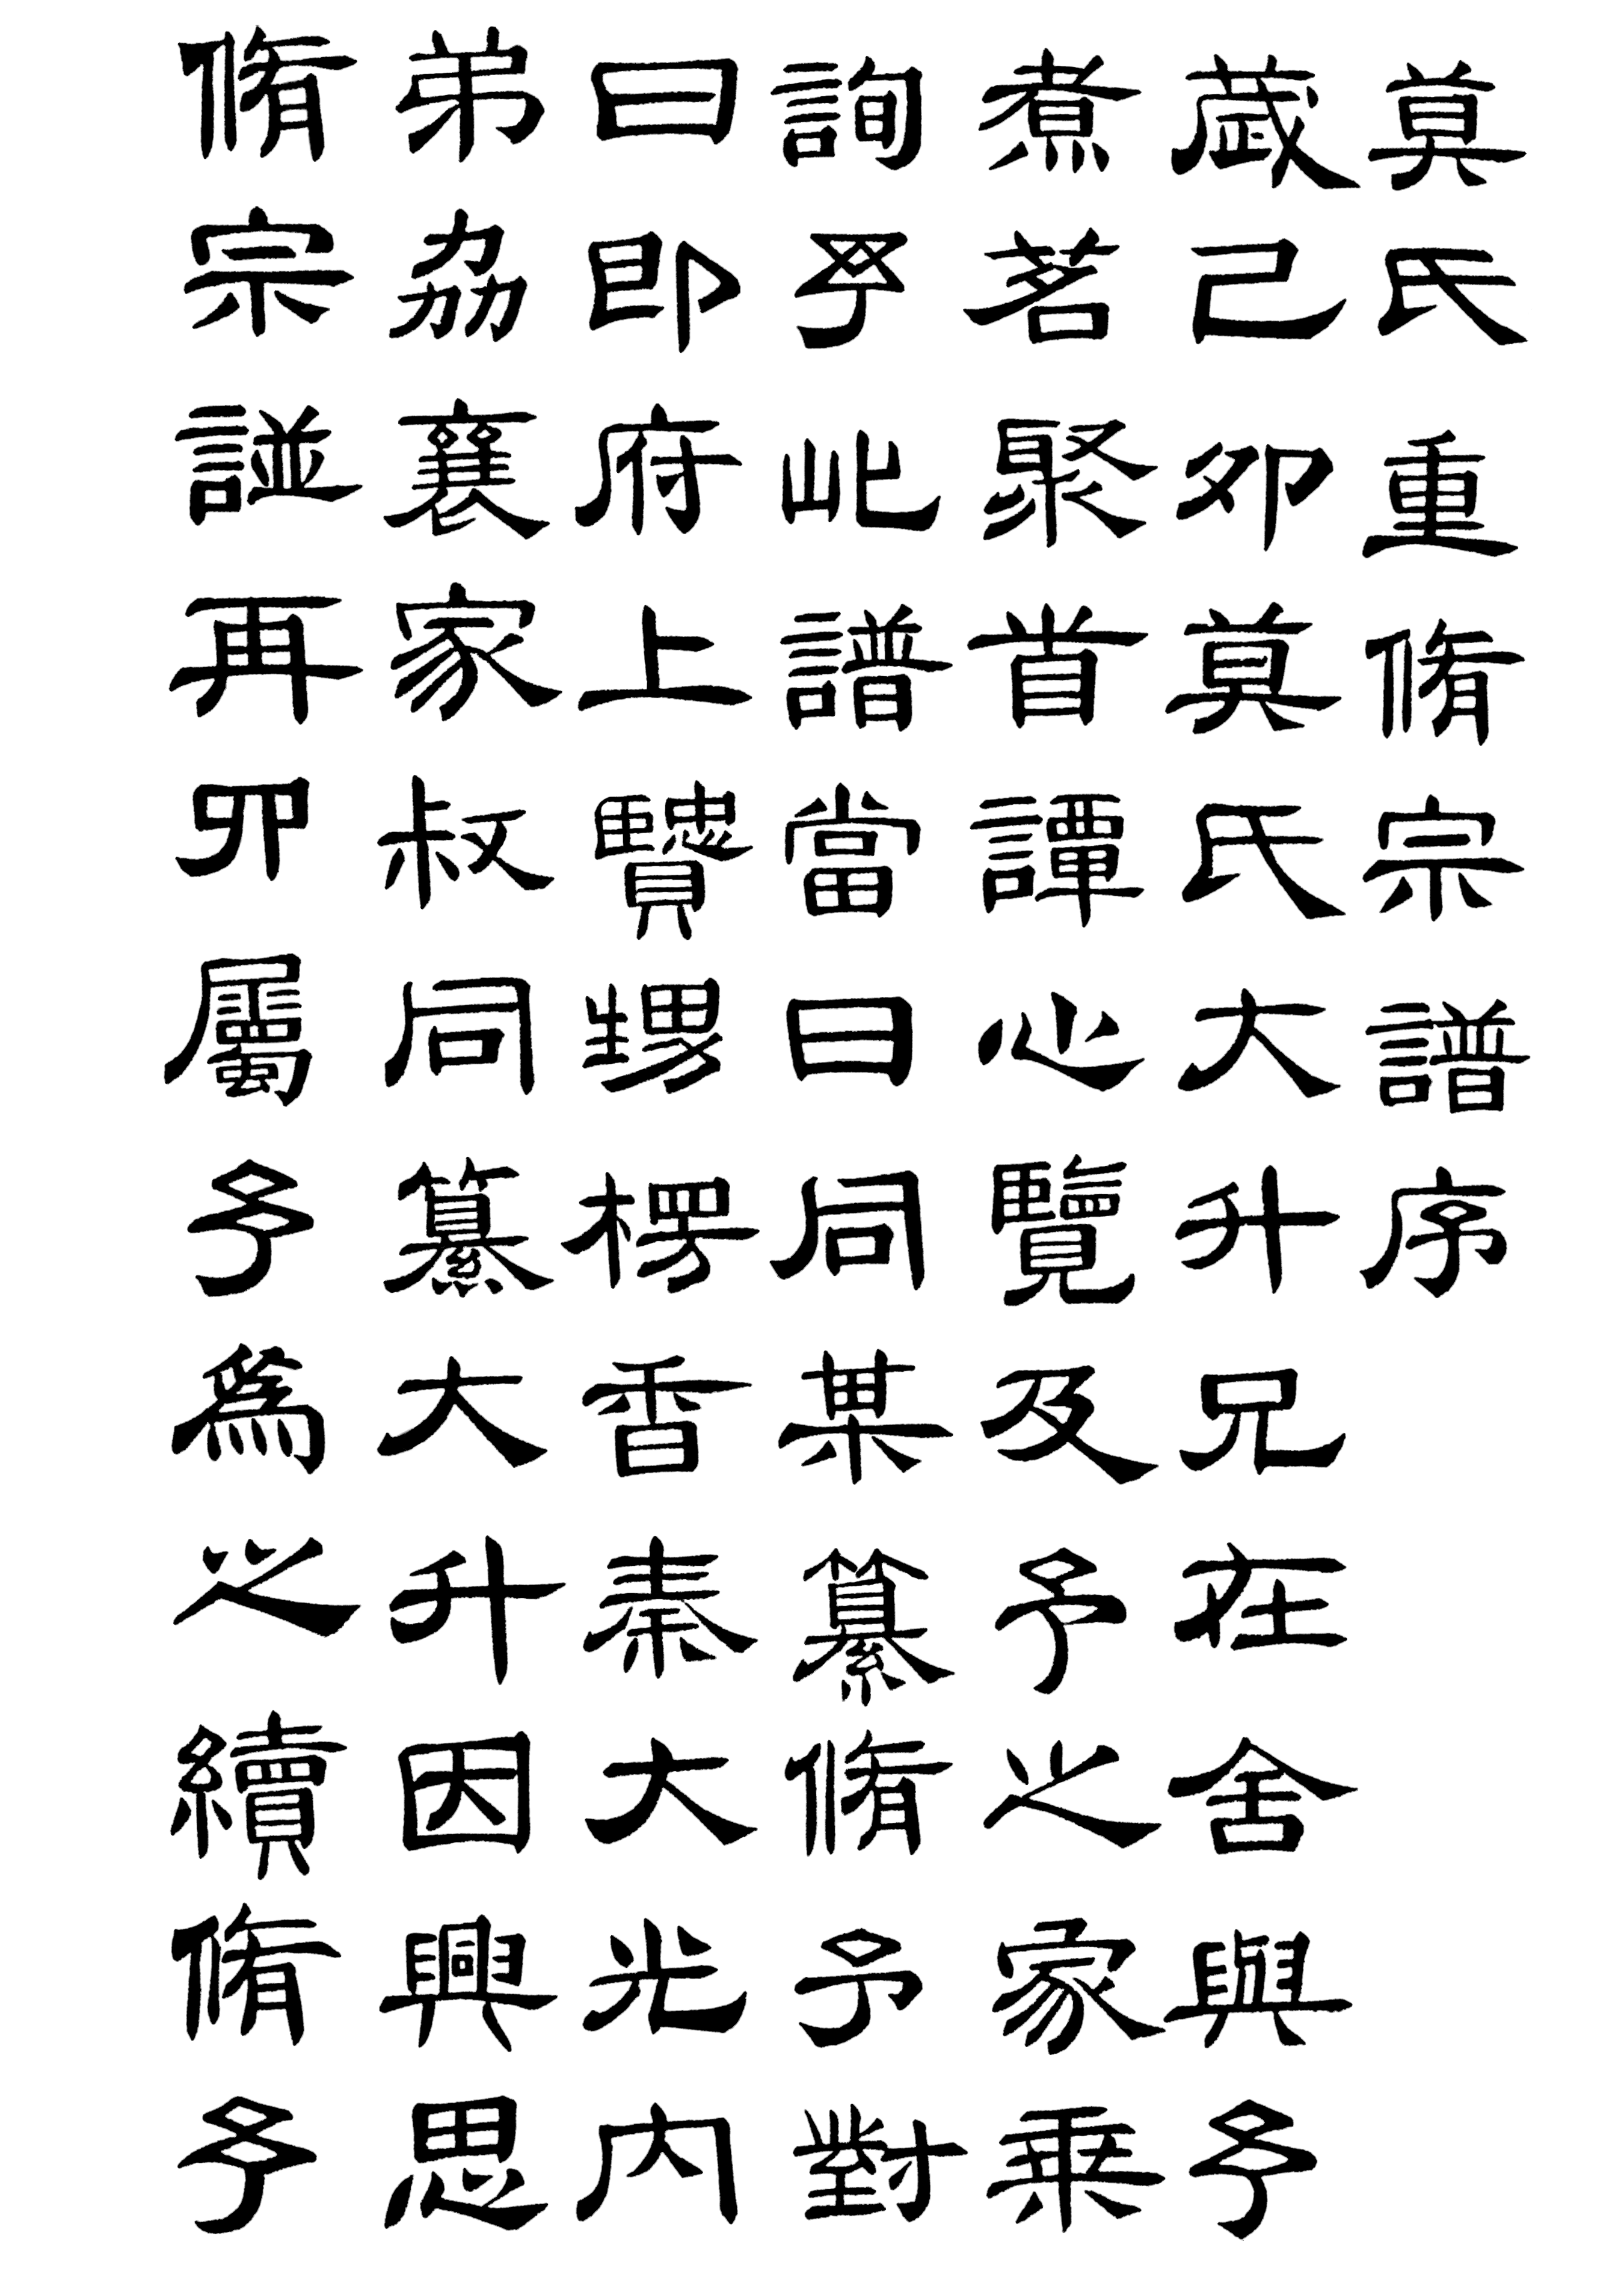 莫氏重脩宗譜序
歲己卯莫氏大升兄在舍與予
煮茗聚首譚心覽及予之家乘
詢予此譜當日同某纂脩予對
曰即府上贒甥楞香秦大光內
弟劦襄家叔同纂大升因興思
脩宗䛬再四屬予爲之續脩予